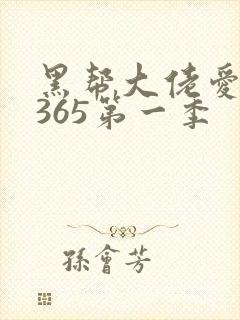 黑帮大佬爱
365第一季
孫會芳